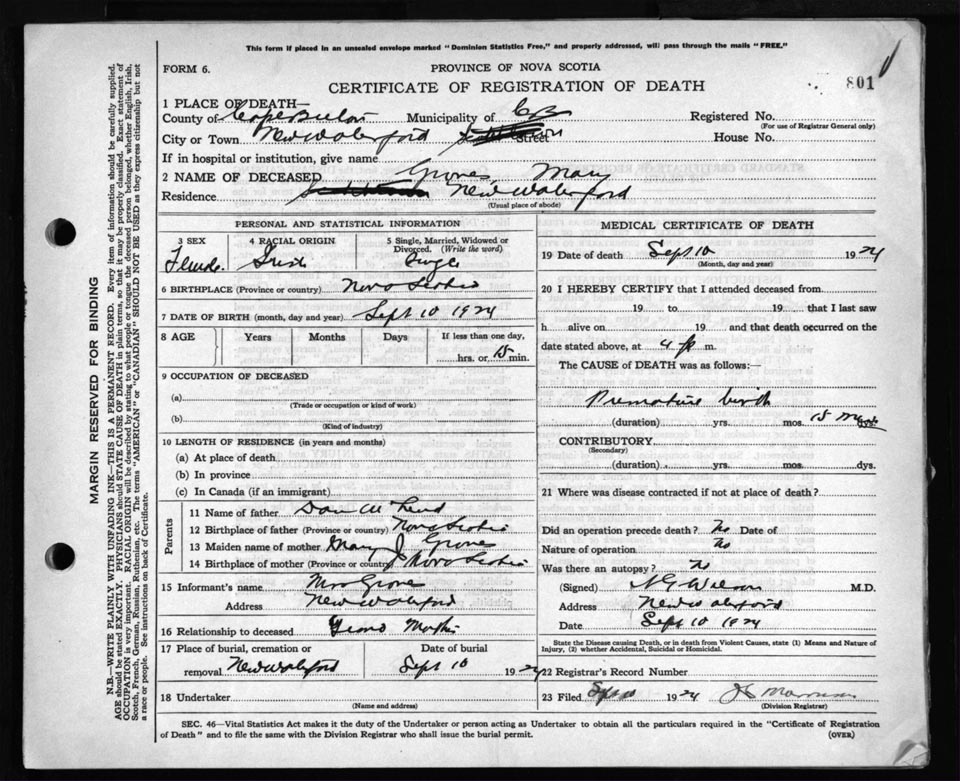 This form if placed in an unsealed envelope marked "Dominion Statistics Free," and properly addressed, will pass through the mails "FREE."
FORM 6.
PROVINCE OF NOVA SCOTIA
801
CERTIFICATE OF REGISTRATION OF DEATH
1 PLACE OF DEATH—
County of Cape Breton Municipality of C B Registered No.
(For use of Registrar General only)
City or Town New Waterford Street House No.
If in hospital or institution, give name
2 NAME OF DECEASED Grove, Mary
Residence New Waterford
(Usual place of abode)
PERSONAL AND STATISTICAL INFORMATION
3 SEX 4 RACIAL ORIGIN 5 Single, Married, Widowed or Divorced. (Write the word)
Female Irish Single
6 BIRTHPLACE (Province or country) Nova Scotia
7 DATE OF BIRTH (month, day and year) Sept 10 1924
8 AGE Years Months Days If less than one day,
hrs. or 15 min.
9 OCCUPATION OF DECEASED
(a)
(Trade or occupation or kind of work)
(b)
(Kind of industry)
10 LENGTH OF RESIDENCE (in years and months)
(a) At place of death
(b) In province
(c) In Canada (if an immigrant)
Parents
11 Name of father Dan
12 Birthplace of father (Province or country) Nova Scotia
13 Maiden name of mother Mary J Grove
14 Birthplace of mother (Province or country) Nova Scotia
15 Informant's name Mrs Grove
Address New Waterford
16 Relationship to deceased Grand Mother
17 Place of burial, cremation or Date of burial
removal New Waterford Sept 10 1924
18 Undertaker
(Name and address)
MEDICAL CERTIFICATE OF DEATH
19 Date of death Sept 10 1924
(Month, day and year)
20 I HEREBY CERTIFY that I attended deceased from
19 to 19 that I last saw
h alive on 19 and that death occurred on
date stated above, at 4 p m.
The CAUSE of DEATH was as follows:—
Premature birth
(duration) yrs. mos. 15 dys.
CONTRIBUTORY
(Secondary)
(duration) yrs. mos. dys.
21 Where was disease contracted if not at place of death?
Did an operation precede death? No Date of
Nature of operation No
Was there an autopsy? No
(Signed) M.D.
Address New Waterford
Date Sept 10 1924
State the Disease causing Death, or in death from Violent Causes, state (1) Means and Nature of
Injury, (2) whether Accidental, Suicidal or Homicidal.
22 Registrar's Record Number
23 Filed 1924
(Division Registrar)
SEC. 46—Vital Statistics Act makes it the duty of the Undertaker or person acting as Undertaker to obtain all the particulars required in the "Certificate of Registration
of Death" and to file the same with the Division Registrar who shall issue the burial permit. (OVER)
MARGIN RESERVED FOR BINDING
N.B.—WRITE PLAINLY WITH UNFADING INK—THIS IS A PERMANENT RECORD. Every item of information should be carefully supplied.
AGE should be stated EXACTLY. PHYSICIANS should STATE CAUSE OF DEATH in plain terms, so that it may be properly classified. Exact statement of
OCCUPATION is very important. RACIAL ORIGIN will be described by stating to what people or tongue the deceased person belonged, whether English, Irish,
Scotch, French, German, Russian, Ruthenian, etc. The terms "AMERICAN" or "CANADIAN" SHOULD NOT BE USED as they express citizenship but not
a race or people. See instructions on back of Certificate.